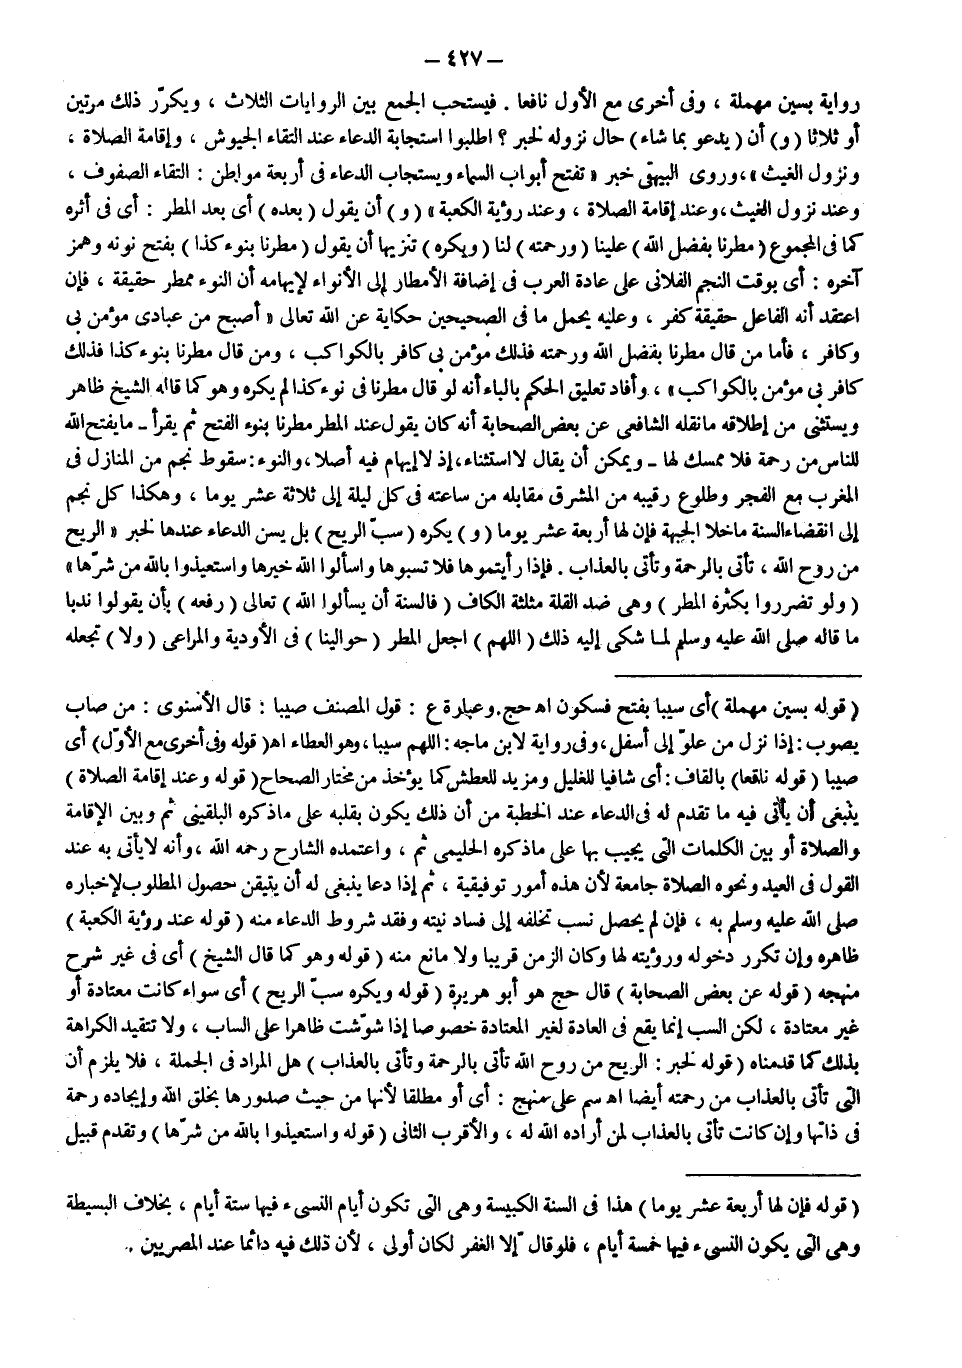 – ٤٢٧ –
رواية بسين مهملة ، وفى أخرى مع الأول نافعا . فيستحب الجمع بين الروايات الثلاث ، ويكرّر ذلك مرتين
أو ثلاثا ( و ) أن ( يدعو بما شاء ) حال نزوله لخبر ؟ اطلبوا استجابة الدعاء عند التقاء الجيوش ، وإقامة الصلاة ،
ونزول الغيث » ، وروى البيهقى خبر « تفتح أبواب السماء ويستجاب الدعاء فى أربعة مواطن : التقاء الصفوف ،
وعند نزول الغيث ، وعند إقامة الصلاة ، وعند رؤية الكعبة » ( و ) أن يقول ( بعده ) أى بعد المطر : أى فى أثره
كما فى المجموع ( مطرنا بفضل الله ) علينا ( ورحمته ) لنا ( ويكره ) تنزيها أن يقول ( مطرنا بنوء كذا ) بفتح نونه وهمز
آخره : أى بوقت النجم الفلانى على عادة العرب فى إضافة الأمطار إلى الأنواء لإيهامه أن النوء ممطر حقيقة ، فإن
اعتقد أنه الفاعل حقيقة كفر ، وعليه يحمل ما فى الصحيحين حكاية عن الله تعالى « أصبح من عبادى مؤمن بى
وكافر ، فأما من قال مطرنا بفضل الله ورحمته فذلك مؤمن بى كافر بالكواكب ، ومن قال مطرنا بنوء كذا فذلك
كافر بى مؤمن بالكواكب » ، وأفاد تعليق الحكم بالباء أنه لو قال مطرنا فى نوء كذا لم يكره وهو كما قاله الشيخ ظاهر
ويستثنى من إطلاقه مانقله الشافعى عن بعض الصحابة أنه كان يقول عند المطر مطرنا بنوء الفتح ثم يقرأ – مايفتح الله
للناس من رحمة فلا ممسك لها – ويمكن أن يقال لا استثناء ، إذ لا إيهام فيه أصلا ، والنوء : سقوط نجم من المنازل فى
المغرب مع الفجر وطلوع رقيبه من المشرق مقابله من ساعته فى كل ليلة إلى ثلاثة عشر يوما ، وهكذا كل نجم
إلى انقضاء السنة ماخلا الجبهة فإن لها أربعة عشر يوما ( و ) يكره ( سبّ الريح ) بل يسن الدعاء عندها لخبر « الريح
من روح الله ، تأتى بالرحمة وتأتى بالعذاب . فإذا رأيتموها فلا تسبوها واسألوا الله خيرها واستعيذوا بالله من شرّها »
( ولو تضرروا بكثرة المطر ) وهى ضد القلة مثلثة الكاف ( فالسنة أن يسألوا الله ) تعالى ( رفعه ) بأن يقولوا ندبا
ما قاله صلى الله عليه وسلم لما شكى إليه ذلك ( اللهم ) اجعل المطر ( حوالينا ) فى الأودية والمراعى ( ولا ) تجعله
( قوله بسين مهملة ) أى سيبا بفتح فسكون اه حج . وعبارة ع : قول المصنف صيبا : قال الأسنوى : من صاب
يصوب : إذا نزل من علوّ إلى أسفل ، وفى رواية لابن ماجه : اللهم سيبا ، وهو العطاء اه ( قوله وفى أخرى مع الأوّل ) أى
صيبا ( قوله ناقعا ) بالقاف : أى شافيا للغليل ومزيد للعطش كما يؤخذ من مختار الصحاح ( قوله وعند إقامة الصلاة )
ينبغى أن يأتى فيه ما تقدم له فى الدعاء عند الخطبة من أن ذلك يكون بقلبه على ماذكره البلقينى ثم وبين الإقامة
والصلاة أو بين الكلمات التى يجيب بها على ماذكره الحليمى ثم ، واعتمده الشارح رحمه الله ، وأنه لايأتى به عند
القول فى العيد ونحوه الصلاة جامعة لأن هذه أمور توفيقية ، ثم إذا دعا ينبغى له أن يتيقن حصول المطلوب لإخباره
صلى الله عليه وسلم به ، فإن لم يحصل نسب تخلفه إلى فساد نيته وفقد شروط الدعاء منه ( قوله عند رؤية الكعبة )
ظاهره وإن تكرر دخوله ورؤيته لها وكان الزمن قريبا ولا مانع منه ( قوله وهو كما قال الشيخ ) أى فى غير شرح
منهجه ( قوله عن بعض الصحابة ) قال حج هو أبو هريرة ( قوله ويكره سبّ الريح ) أى سواء كانت معتادة أو
غير معتادة ، لكن السب إنما يقع فى العادة لغير المعتادة خصوصا إذا شوّشت ظاهرا على الساب ، ولا تتقيد الكراهة
بذلك كما قدمناه ( قوله لخبر : الريح من روح الله تأتى بالرحمة وتأتى بالعذاب ) هل المراد فى الجملة ، فلا يلزم أن
التى تأتى بالعذاب من رحمته أيضا اه سم على منهج : أى أو مطلقا لأنها من حيث صدورها بخلق الله وإيجاده رحمة
فى ذاتها وإن كانت تأتى بالعذاب لمن أراده الله له ، والأقرب الثانى ( قوله واستعيذوا بالله من شرّها ) وتقدم قبيل
( قوله فإن لها أربعة عشر يوما ) هذا فى السنة الكبيسة وهى التى تكون أيام النسىء فيها ستة أيام ، بخلاف البسيطة
وهى التى يكون النسىء فيها خمسة أيام ، فلو قال إلا الغفر لكان أولى ، لأن ذلك فيه دائما عند المصريين .